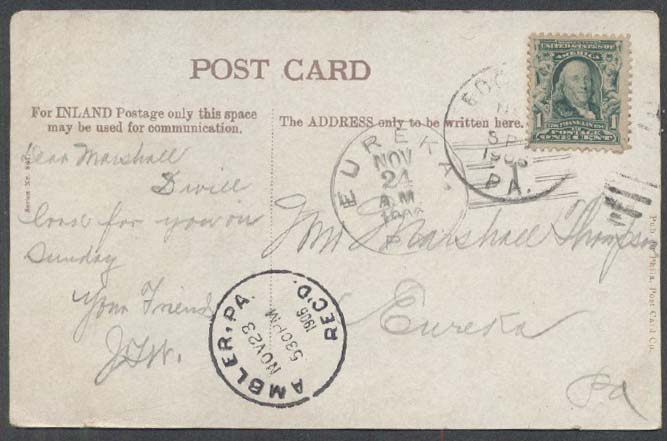 POST CARD
For INLAND Postage only this space
may be used for communication.
The ADDRESS only to be written here.
Dear Marshall
I will
look for you on
Sunday
Your Friend
J.T.W.
Marshall Thompson
Eureka
Pa
EUREKA.
NOV
24
A.M.
1906
PA.
UNITED STATES OF
AMERICA
1 1
FRANKLIN
POSTAGE
ONE CENT
AMBLER, PA.
NOV 23
530PM
1906
REC'D.
Pub. by Phila. Post Card Co.